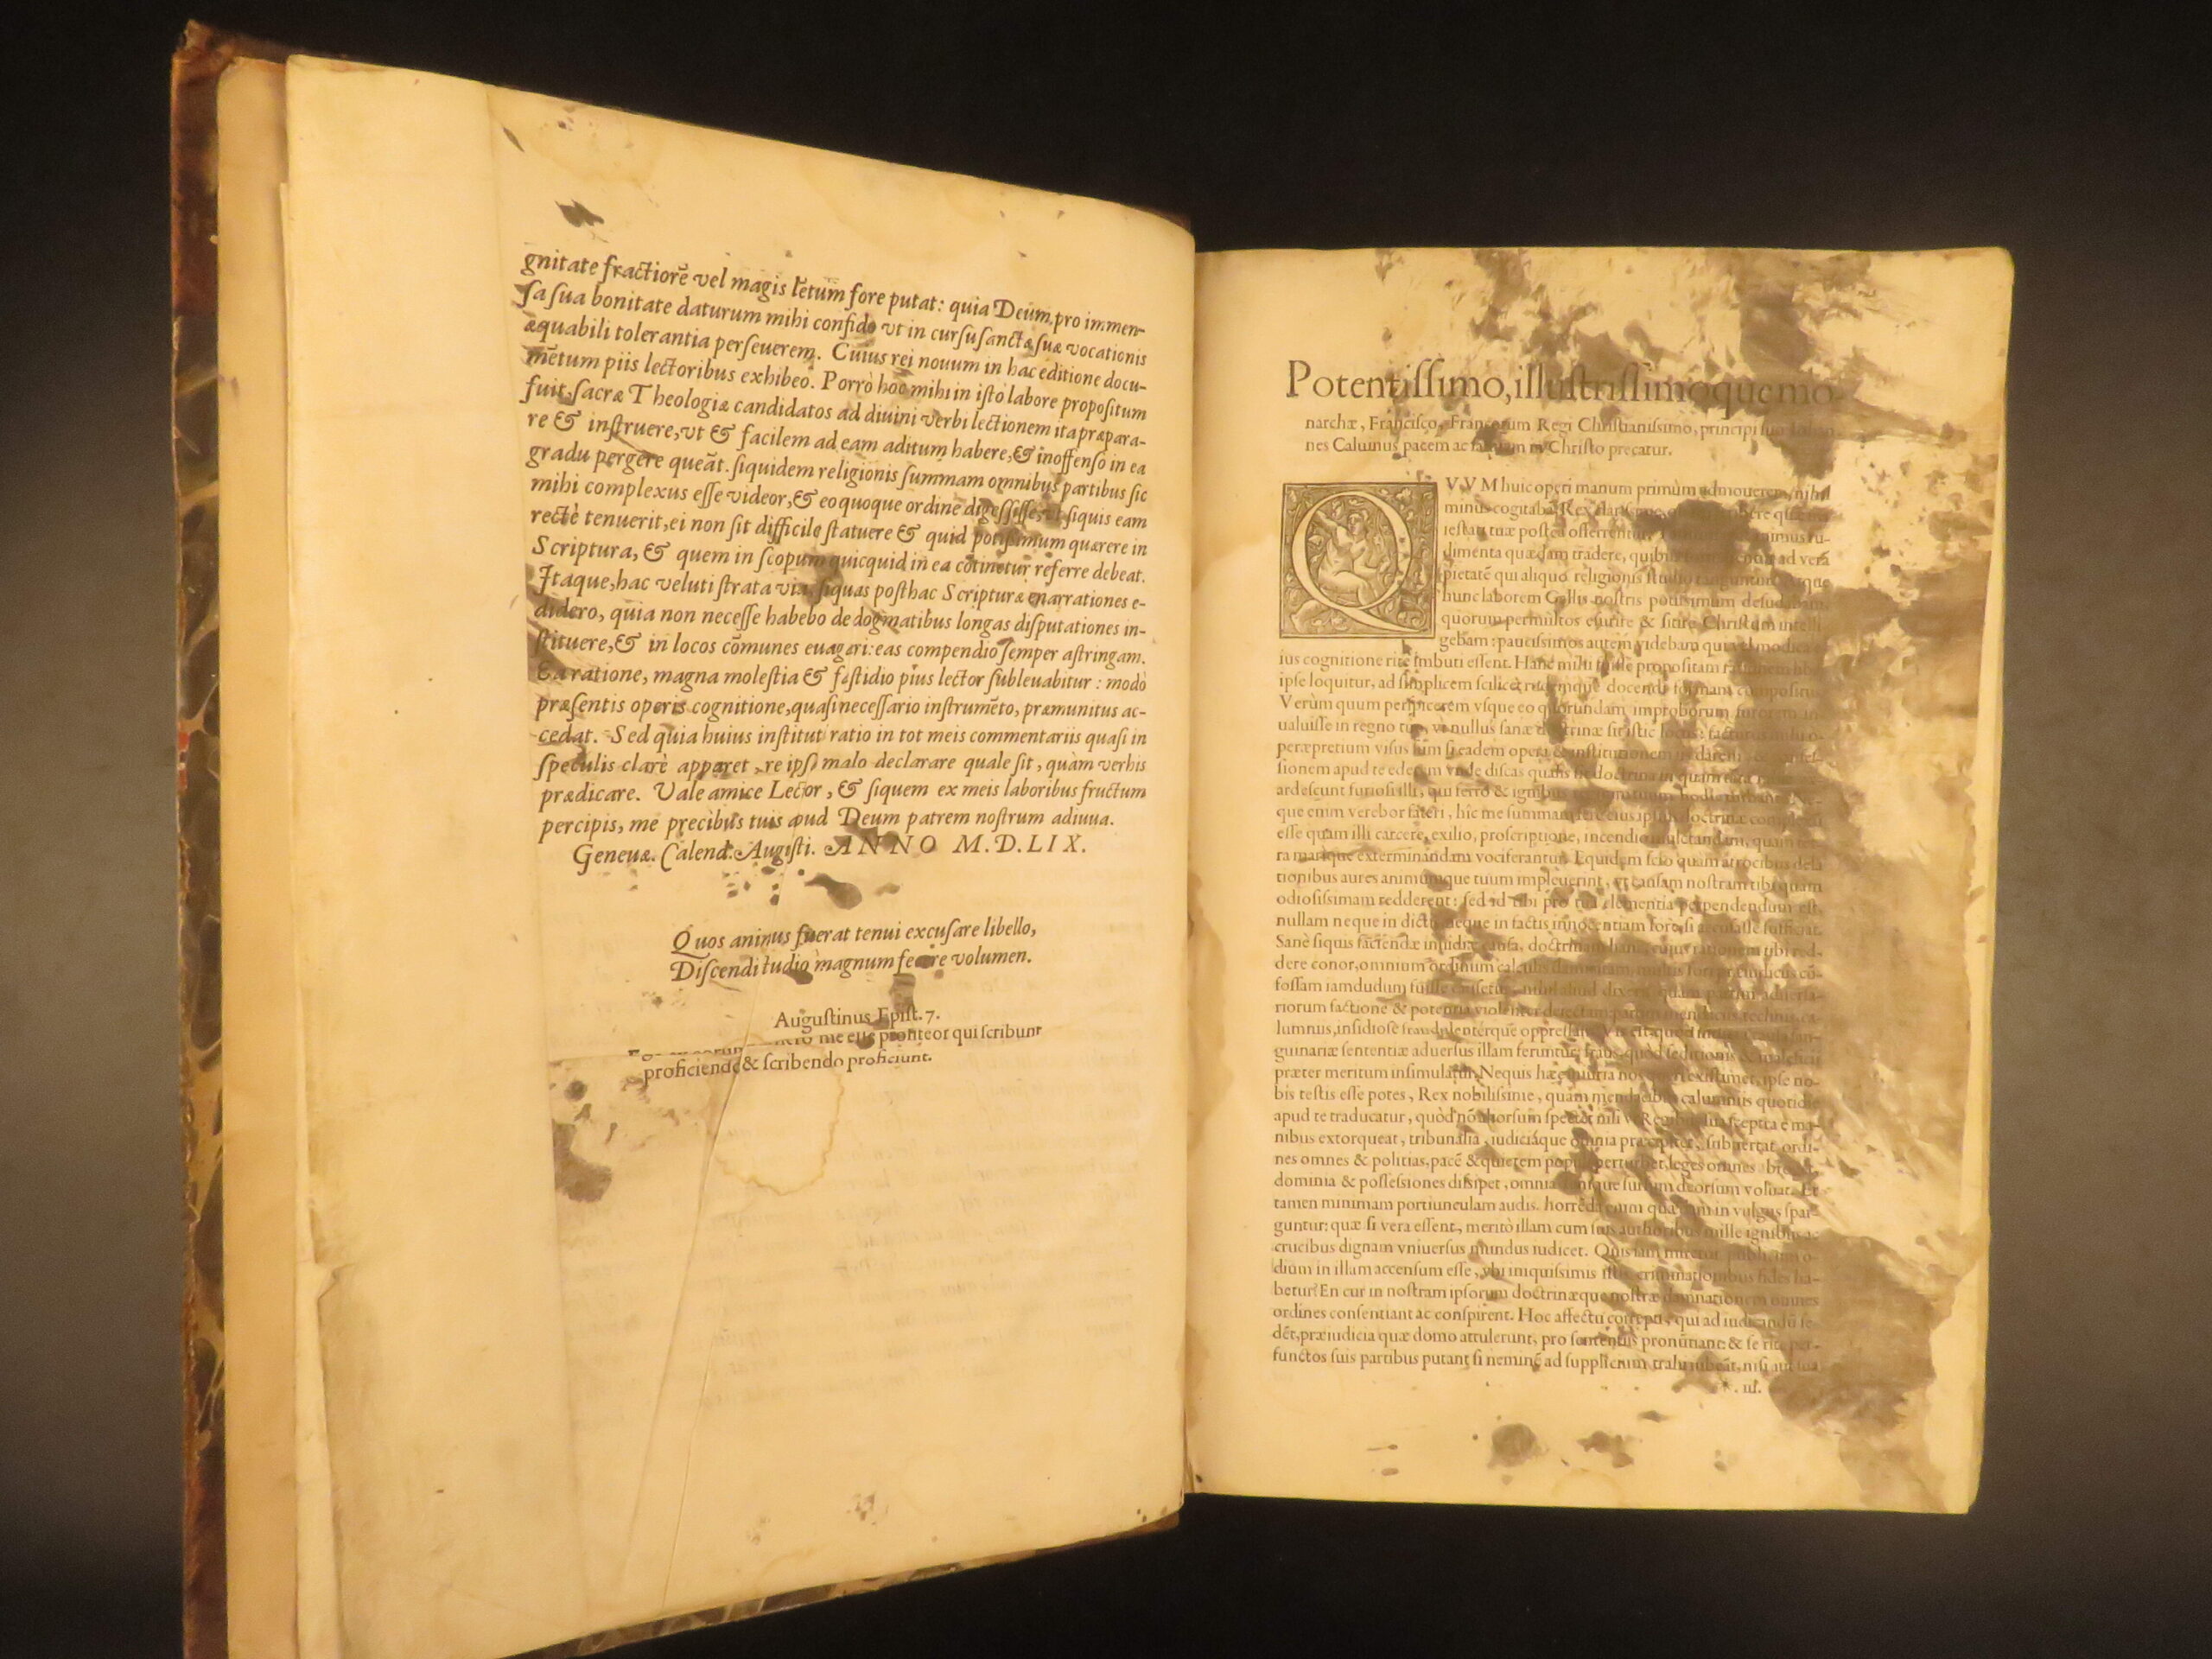 gnitate fractiorē vel magis lētum fore putat: quia Deum pro immen-
ſa ſua bonitate daturum mihi confido vt in curſu ſanctæ ſuæ vocationis
æquabili tolerantia perſeuerem. Cuius rei nouum in hac editione docu-
mētum piis lectoribus exhibeo. Porrò hoc mihi in iſto labore propoſitum
fuit, ſacræ Theologiæ candidatos ad diuini verbi lectionem ita præpara-
re & inſtruere, vt & facilem ad eam aditum habere, & inoffenſo in ea
gradu pergere queāt. ſiquidem religionis ſummam omnibus partibus ſic
mihi complexus eſſe videor, & eo quoque ordine digeſſiſſe, vt ſiquis eam
rectè tenuerit, ei non ſit difficile ſtatuere & quid potiſſimum quærere in
Scriptura, & quem in ſcopum quicquid in ea cōtinetur referre debeat.
Itaque, hac veluti ſtrata via, ſiquas poſthac Scripturæ enarrationes e-
didero, quia non neceſſe habebo de dogmatibus longas diſputationes in-
ſtituere, & in locos cōmunes euagari: eas compendio ſemper aſtringam.
Ea ratione, magna moleſtia & faſtidio pius lector ſubleuabitur: modò
præſentis operis cognitione, quaſi neceſſario inſtrumēto, præmunitus ac-
cedat. Sed quia huius inſtituti ratio in tot meis commentariis quaſi in
ſpeculis clarè apparet, re ipſa malo declarare quale ſit, quàm verbis
prædicare. Vale amice Lector, & ſiquem ex meis laboribus fructum
percipis, me precibus tuis apud Deum patrem noſtrum adiuua.
Geneuæ. Calend. Auguſti. ANNO M.D.LIX.
Quos animus fuerat tenui excuſare libello,
Diſcendi ſtudio magnum fecere volumen.
Auguſtinus Epiſt. 7.
me eſſe profiteor qui ſcribunt
proficiendo & ſcribendo proficiunt.
Potentiſſimo, illuſtriſſimoque mo-
narchæ, Franciſco, Francorum Regi Chriſtianiſsimo, principi ſuo
nes Caluinus pacem ac ſalutem in Chriſto precatur.
QVVM huic operi manum primùm admouerem, nihil
minus cogitabam, Rex clariſsime, quàm ſcribere quæ
ieſtati tuæ poſtea offerrentur. animus ru-
dimenta quædam tradere, quibus ad verā
pietatē qui aliquo religionis ſtudio tanguntur. Atque
hunc laborem Gallis noſtris potiſsimum deſudabam,
quorum permultos eſurire & ſitire Chriſtum intelli-
gebam: pauciſsimos autem videbam qui vel modica e-
ius cognitione ritè imbuti eſſent. Hanc mihi fuiſſe propoſitam
ipſe loquitur, ad ſimplicem ſcilicet rudemque docendi formam
Verùm quum perſpicerem vſque eo quorundam improborum furorem in-
ualuiſſe in regno tuo, vt nullus ſanæ doctrinæ ſit iſtic locus:
peræpretium viſus ſum ſi eadem opera & inſtitutionem
ſionem apud te ederem vnde diſcas qualis ſit doctrina in quam
ardeſcunt furioſi illi, qui ferro & ignibus
que enim verebor fateri, hîc me ſummam ferè eius ipſius doctrinæ complexum
eſſe quam illi carcere, exilio, proſcriptione, incendio mulctandam, quam ter-
ra marique exterminandam vociferantur. Equidem ſcio quàm atrocibus dela-
tionibus aures animumque tuum impleuerint, vt cauſam noſtram tibi quàm
odioſiſsimam redderent: ſed id tibi pro tua clementia perpendendum eſt,
nullam neque in dictis neque in factis innocentiam fore, ſi accuſaſſe ſufficiat.
Sanè ſiquis faciendæ inuidiæ cauſa, doctrinam hanc, cuius rationem tibi red-
dere conor, omnium ordinum calculis damnatam, multis fori præiudiciis cō-
foſſam iamdudum fuiſſe nihil aliud dixerit quàm partim aduerſa-
riorum factione & potentia violenter deiectam, partim mendaciis, technis, ca-
lumniis, inſidioſè fraudulentérque oppreſſam.
guinariæ ſententiæ aduerſus illam feruntur: fraus, quòd ſeditionis & maleficii
præter meritum inſimulatur. Nequis hæc iniuria nos queri exiſtimet, ipſe no-
bis teſtis eſſe potes, Rex nobiliſsime, quàm mendacibus calumniis quotidie
apud te traducatur, quòd nō aliorſum ſpectet niſi vt Regibus ſua ſceptra è ma-
nibus extorqueat, tribunalia, iudiciáque omnia præcipitet, ſubuertat ordi-
nes omnes & politias, pacē & quietem populi perturbet, leges omnes
dominia & poſſeſsiones diſsipet, omnia denique ſurſum deorſum voluat. Et
tamen minimam portiunculam audis. horrēda enim quædam in vulgus ſpar-
guntur: quæ ſi vera eſſent, meritò illam cum ſuis authoribus mille ignibus ac
crucibus dignam vniuerſus mundus iudicet. Quis iam miretur publicum o-
dium in illam accenſum eſſe, vbi iniquiſsimis iſtis criminationibus fides ha-
betur? En cur in noſtram ipſorum doctrinæque noſtræ damnationem omnes
ordines conſentiant ac conſpirent. Hoc affectu correpti, qui ad iudicandū ſe-
dēt, præiudicia quæ domo attulerunt, pro ſententiis pronūtiant: & ſe ritè per-
functos ſuis partibus putant ſi neminē ad ſupplicium trahi iubeāt, niſi aut ſua
*. iii.